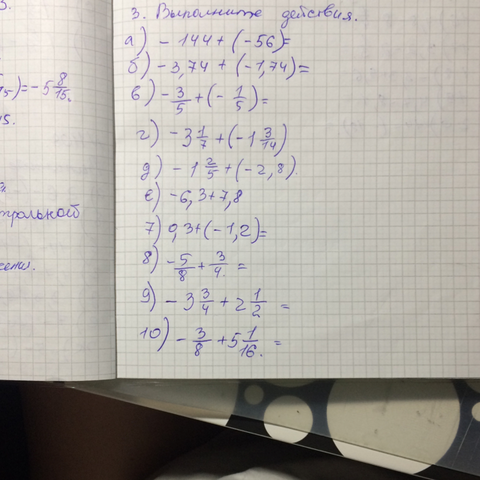 3.
5)=-5 8/15.
15.
тральной
сени.
3. Выполните действия.
а) - 144 + (-56)=
б) -3,74 + (-1,74)=
в) - 3/5 + (- 1/5)=
г) -3 1/7 + (-1 3/14)
д) -1 2/5 + (-2,8).
е) -6,3+7,8
7) 0,3+(-1,2)=
8) - 5/8 + 3/4. =
9) - 3 3/4 + 2 1/2 =
10) - 3/8 + 5 1/16. =